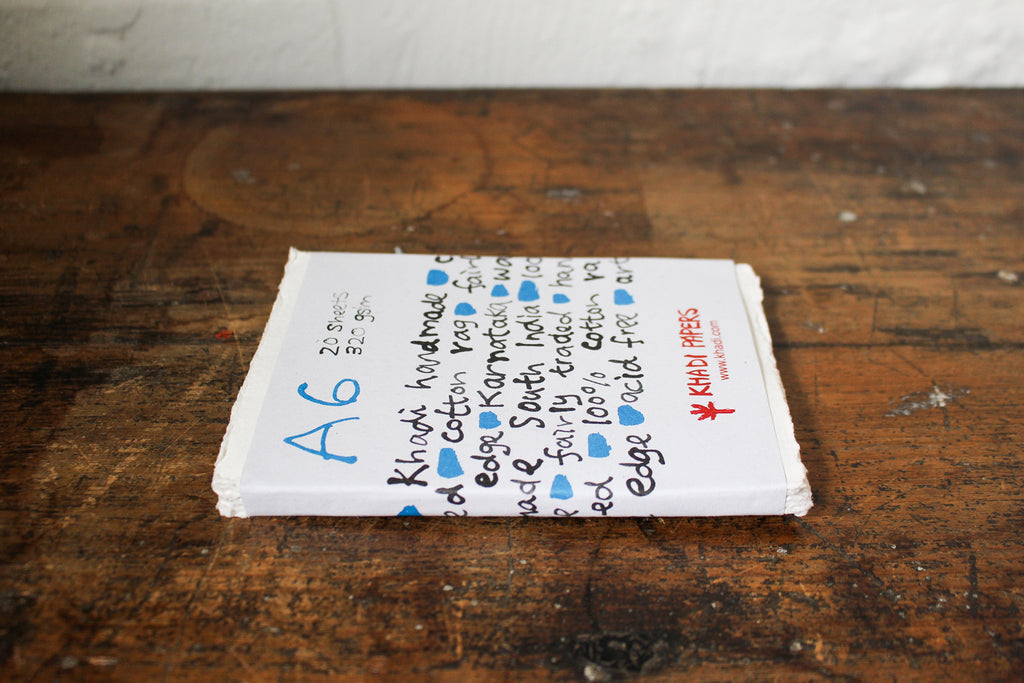 A6
20 sheets
320 gsm
Khadi handmade c
ed cotton rag fairl
edge Karnataka wa
made South India loo
e fairly traded han
ed 100% cotton ra
edge acid free art
KHADI PAPERS
www.khadi.com